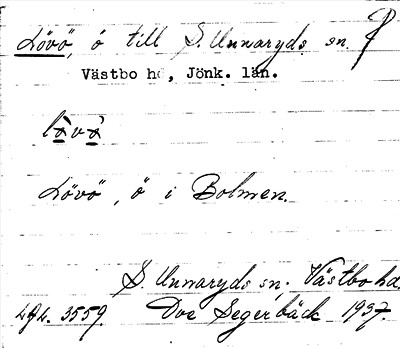 Lövö, ö till S. Unnaryds sn.
Västbo hd, Jönk. län.
Lövö, ö i Bolmen.
S. Unnaryds sn. Västbo hd.
3559. Segerbäck 1937.